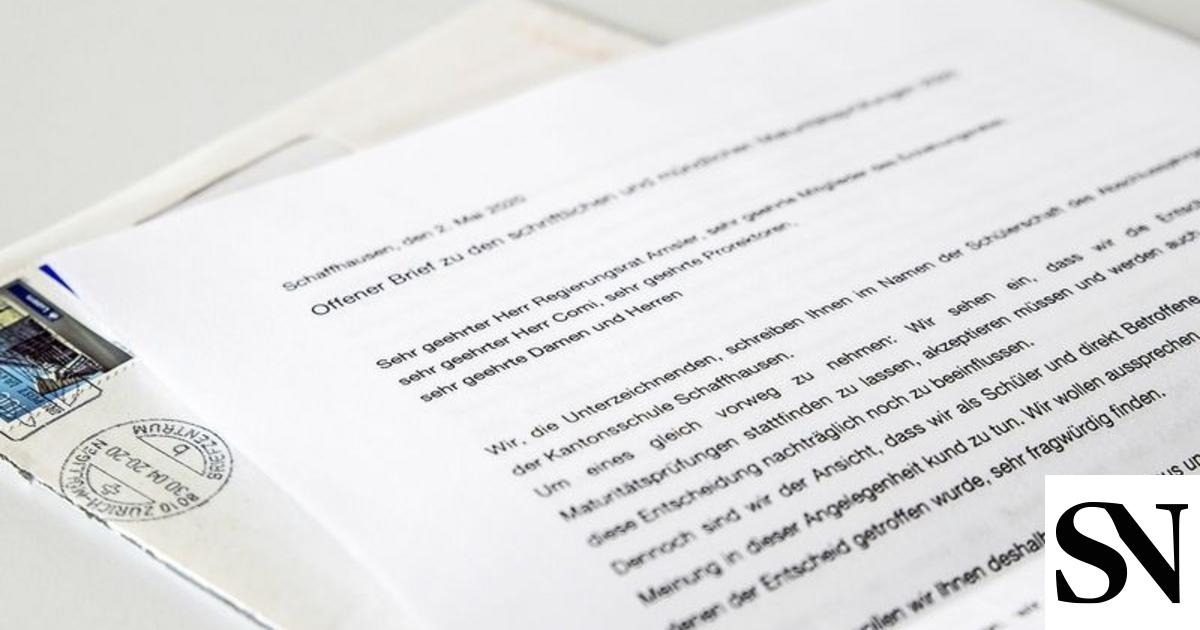 Schaffhausen, den 2. Mai 2020
Offener Brief zu den schriftlichen und mündlichen Maturitätsprüfungen 2020
Sehr geehrter Herr Regierungsrat Amsler, sehr geehrte Mitglieder des Erziehungsrates,
sehr geehrter Herr Corni, sehr geehrte Prorektoren,
sehr geehrte Damen und Herren
Wir, die Unterzeichnenden, schreiben Ihnen im Namen der Schülerschaft des
der Kantonsschule Schaffhausen.
Um eines gleich vorweg zu nehmen: Wir sehen ein, dass wir die
Maturitätsprüfungen stattfinden zu lassen, akzeptieren müssen und werden auch
diese Entscheidung nachträglich noch zu beeinflussen.
Dennoch sind wir der Ansicht, dass wir als Schüler und direkt Betroffene
Meinung in dieser Angelegenheit kund zu tun. Wir wollen aussprechen
denen der Entscheid getroffen wurde, sehr fragwürdig finden.
wir Ihnen deshalb
8010 ZÜRICH-MÜLLIGEN
30.04.20-20
b
BRIEFZENTRUM
SN